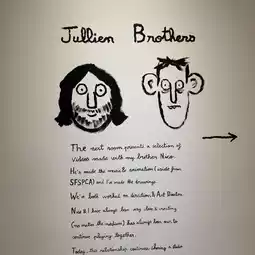 Jullien Brothers
The next room presents a selection of
videos made with my brother Nico.
He's made the music & animation (aside from
SFSPCA) and I've made the drawings.
We've both worked on direction & Art Direction.
Nico & I have always been very close & working
(no matter the medium) has always been our to
continue playing together.
Today, this relationship continues